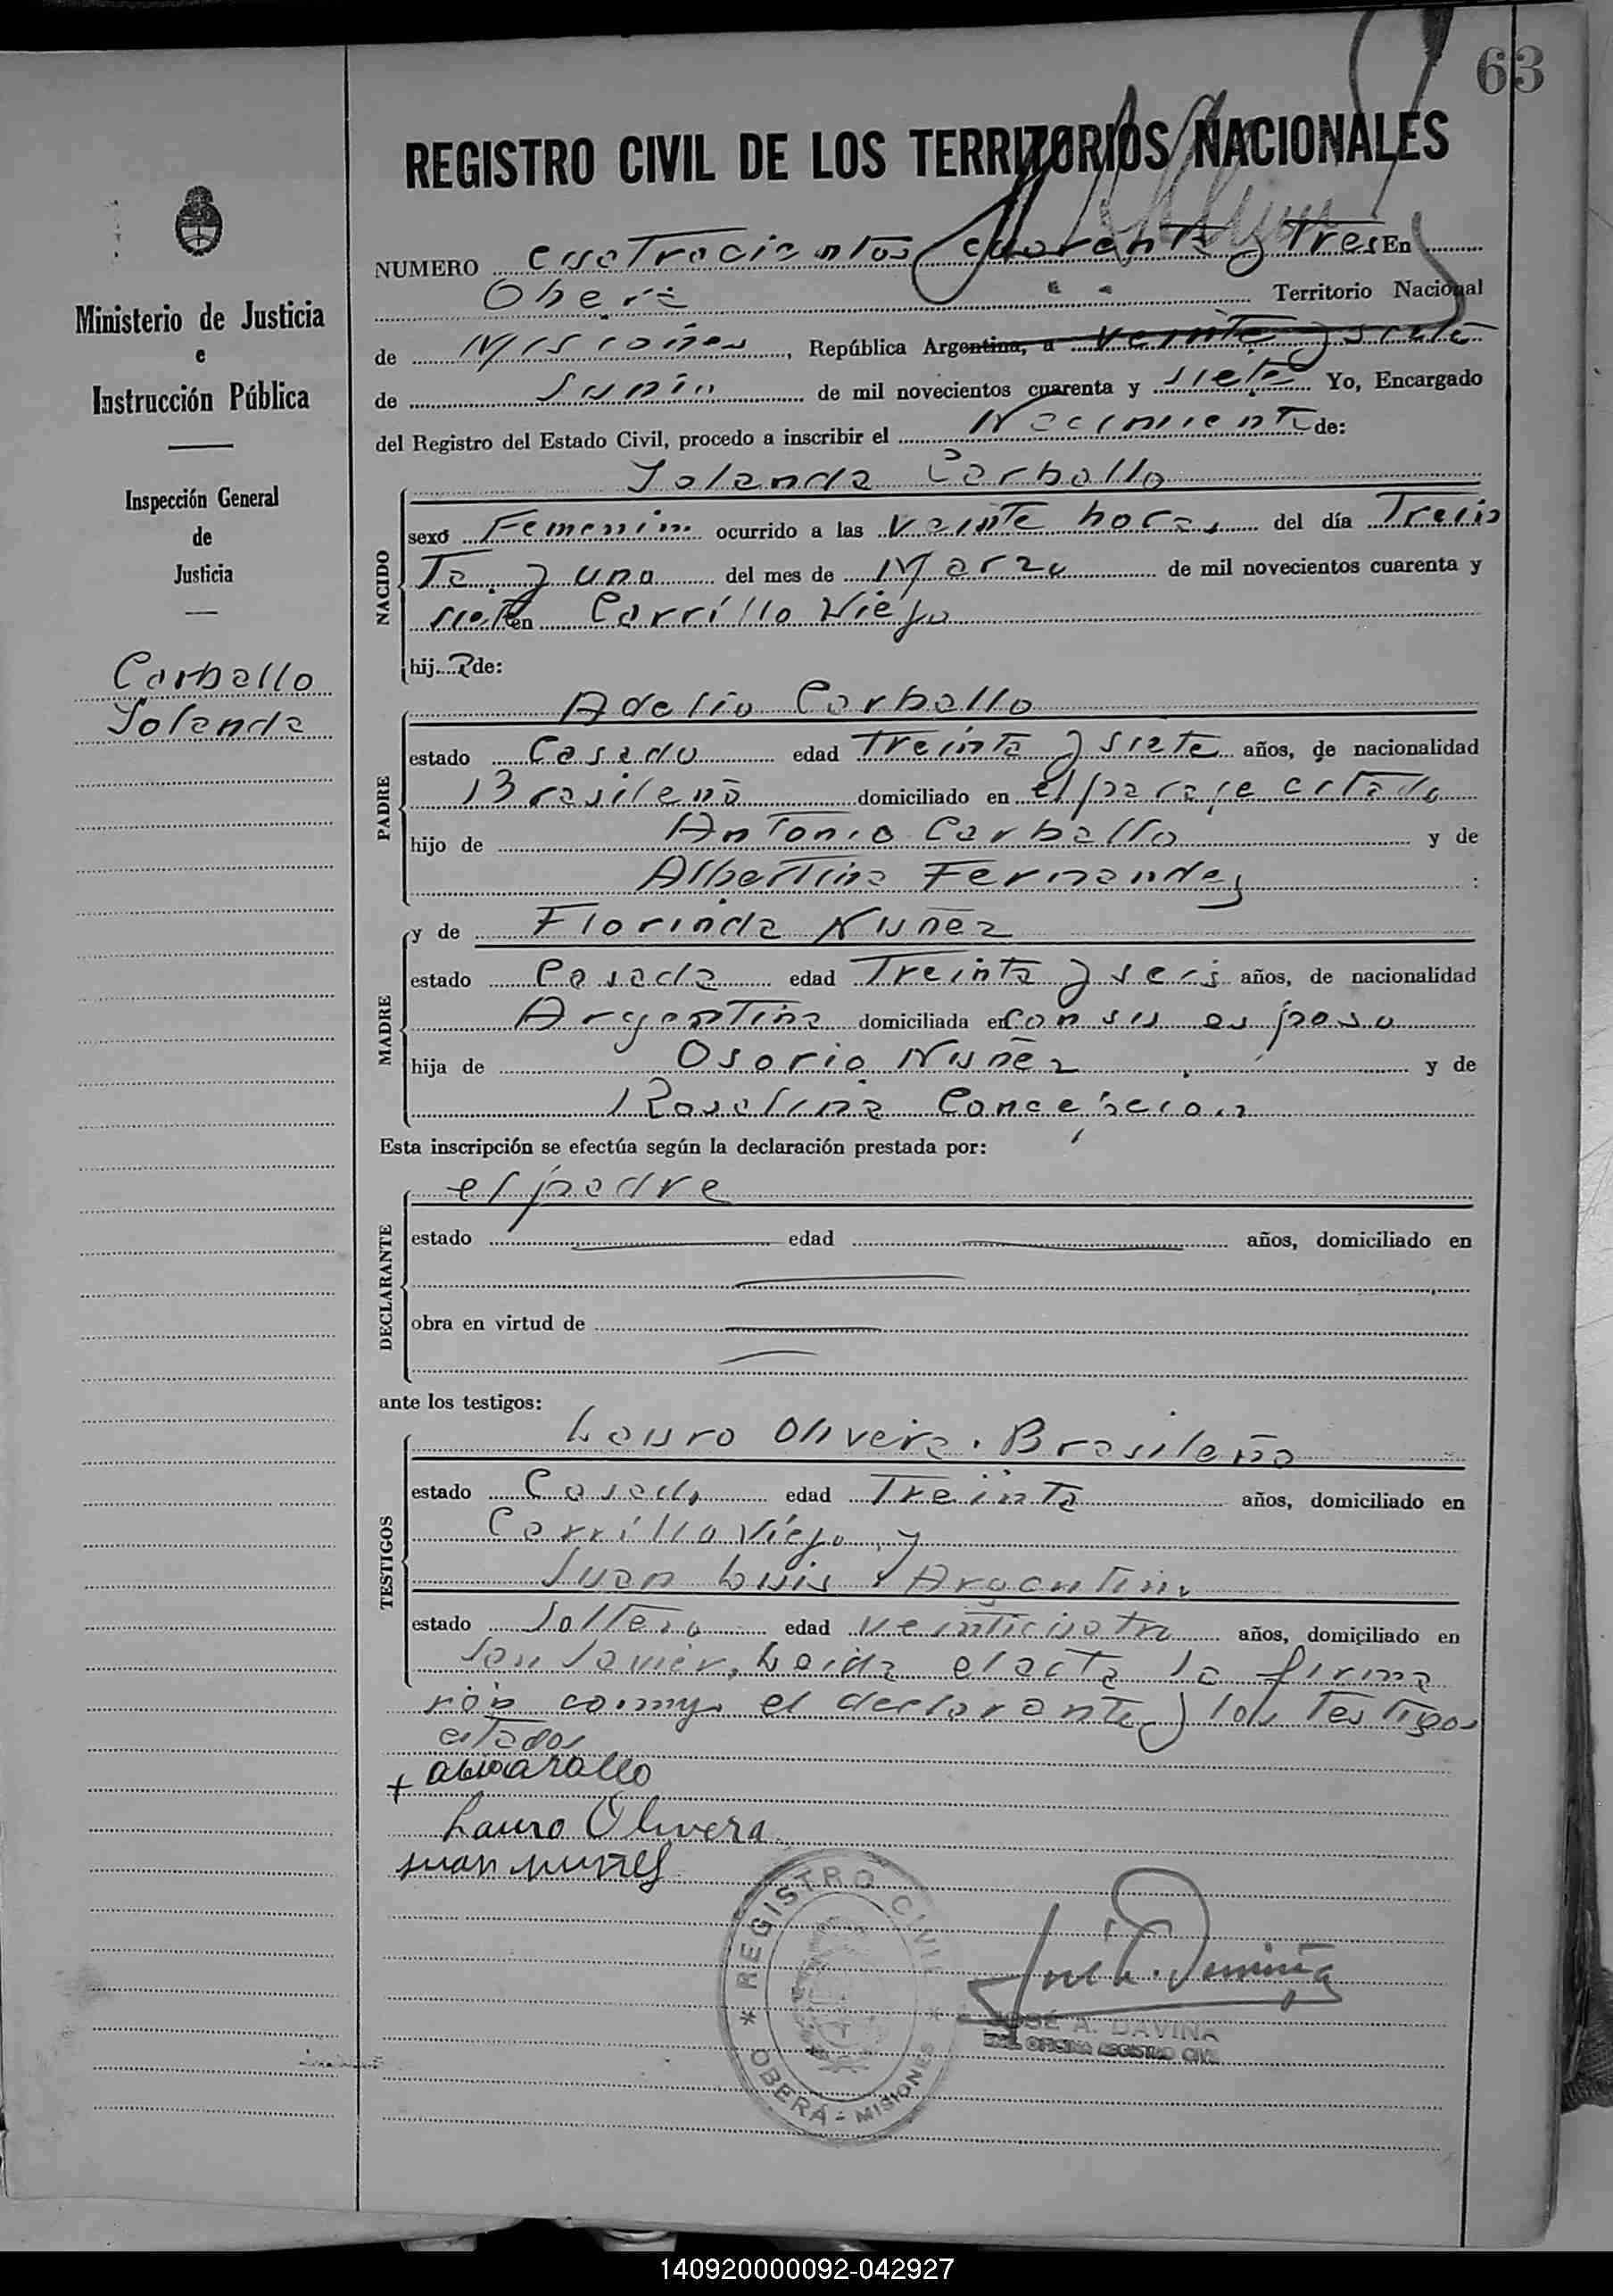 63
REGISTRO CIVIL DE LOS TERRITORIOS NACIONALES
NUMERO cuatrocientos cuarenta y tres En
Oberá Territorio Nacional
de Misiones, República Argentina, a veinte y siete
de Junio de mil novecientos cuarenta y siete Yo, Encargado
del Registro del Estado Civil, procedo a inscribir el Nacimiento de:
Ministerio de Justicia
e
Instrucción Pública
Inspección General
de
Justicia
Carballo
Iolanda
NACIDO
Iolanda Carballo
sexo Femenino ocurrido a las veinte horas del día Trein
Ta y uno del mes de Marzo de mil novecientos cuarenta y
siete en Cerrillo Viejo
hija de:
PADRE
Adelio Carballo
estado Casado edad Treinta y siete años, de nacionalidad
Brasileño domiciliado en el paraje citado
hijo de Antonio Carballo y de
Albertina Fernandes
MADRE
y de Florinda Nuñez
estado Casada edad Treinta y seis años, de nacionalidad
Argentina domiciliada en con su esposo
hija de Osorio Nuñez y de
Roselina Concepcion
Esta inscripción se efectúa según la declaración prestada por:
DECLARANTE
el padre
estado edad años, domiciliado en
obra en virtud de
ante los testigos:
TESTIGOS
Lauro Olivera. Brasileño
estado Casado edad Treinta años, domiciliado en
Cerrillo Viejo y
Juan Luis Argentino
estado Soltero edad veinticuatro años, domiciliado en
San Javier, Leida el acta la firma
rón conmigo el declarante y los Testigos
citados
+
Lauro Olivera
Juan nuñes
REGISTRO CIVIL
OBERÁ - MISIONES
JOSÉ A. DAVIÑA
ENC. OFICINA REGISTRO CIVIL
140920000092-042927